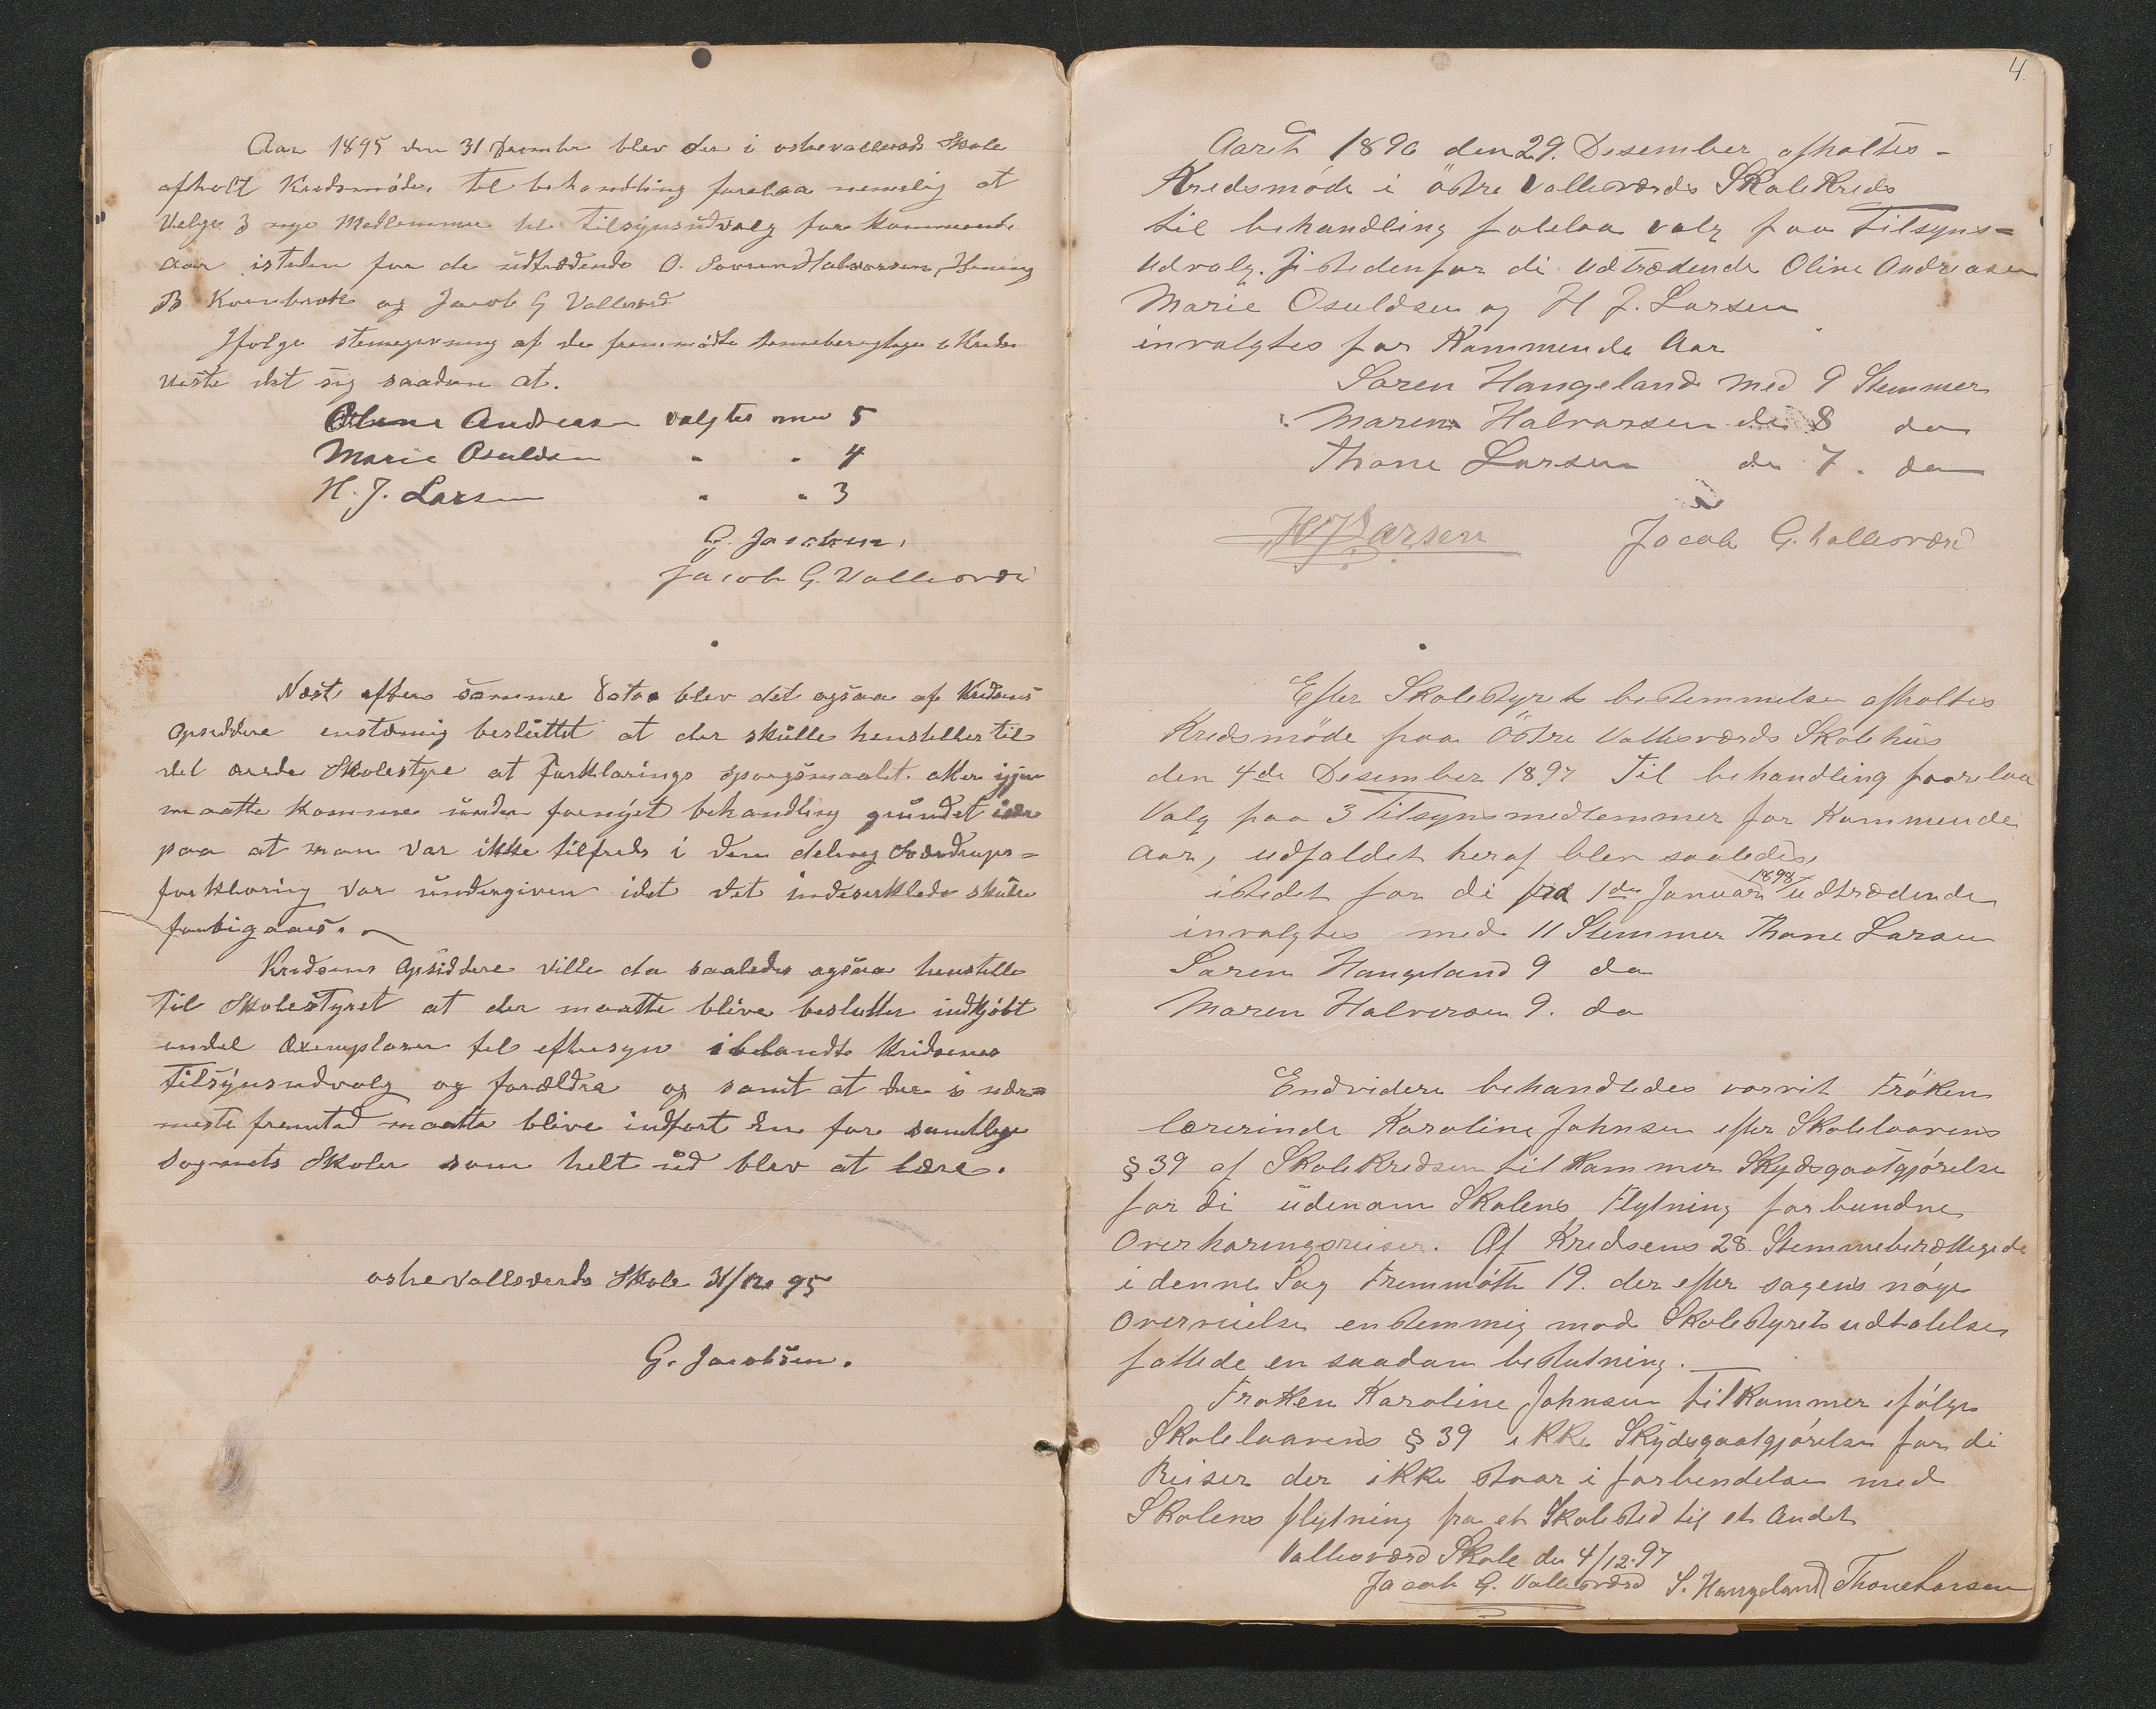 Aar 1895 den 31 Desember blev der i østre vallesværds Skole
afholt Kredsmøde. til behandling forelaa nemelig at
Velge 3 nye Medlemmer til tilsynsudvalg for kommende
Aar isteden for de udtrædende O. Sørren Halvorsen, Hening
B og Jacob G Vallesværd
Ifølge stemegivning af de fremmødte stemeberegtige i Kredsen
viste det sig saadan at.
Oline Andreasen valgtes med 5
Marie Osuldsen " " 4
H. J. Larsen " " 3
G. Jacobsen.
Jacob G. Vallesværd
Næst efter samme Datoe blev det ogsaa af Kredsens
Opsiddere enstæmig besluttet at der skulle henstilles til
det ærede Skolestyre at forklarings spørgsmaalet atter igjen
maatte komme under fornyet behandling grundet
paa at man var ikke tilfreds i den deling Sverdrups=
forklaring var undergiven idet det indeserklede skulle
forbigaaes.
Kredsens Opsiddere ville da saaledes ogsaa henstille
til Skolestyret at der maatte blive besluttet indkjøbt
endel Exemplarer til eftersyn iblandt Kredsenes
tilsynsudvalg og forældre og samt at der i nær=
meste fremtid maatte blive indført En for samtlige
Sognets Skoler som helt ud blev at lære.
østre Vallesværds Skole 31/12 95
G. Jacobsen.
4
Aaret 1896 den 29. Desember afholtes
Kredsmöde i östre Vallesværds SkoleKreds
til behandling folelaa valg paa Tilsyns=
udvalg. Ji stedenfor di udtrædende Oline Andreasen
Marie Osuldsen og H J. Larsen
invalgtes for Kommende Aar
Søren Hangeland med 9 Stemmer
Maren Halvorsen do 8 do
Thone Larsen do 7. do
HJLarsen Jacob G. Vallesværd
Efter Skolestyrets bestemmelse afholtes
Kredsmöde paa Östre Vallesværds Skolehus
den 4de Desember 1897 Til behandling foorelaa
Valg paa 3 Tilsynsmedlemmer for Kommende
Aar, udfaldet heraf blev saaledes,
istedet for di fra 1ste Januar 1898 udtrædende
invalgtes med 11 Stemmer Thone Larsen
Søren Hangeland 9 do
Maren Halvorsen 9. do
Endvidere behandledes vorvit Fröken
lærerinde Karoline Johnsen efter Skoleloovens
§ 39 af SkoleKredsen til Kommer Skydsgootgjörelse
for di udenom Skolens Flytning forbundne
Overhøringsreiser. Af Kredsens 28. Stemmeberættegede
i denne Sag Fremmötte 19. der efter sagens nöge
Overveielse enstemmig mod Skolestyrets udtalelse
fattede en saadan beslutning.
Frøken Karoline Johnsen tilKommer ifölge
Skoleloovens § 39 ikke Skydsgootgjörelse for di
Reiser der ikke staar i forbindelse med
Skolens flytning fra et Skolested til et Andet
Vallesværd Skole den 4/12.97
Jacob G. Vallesværd S. Hangeland Thone Larsen